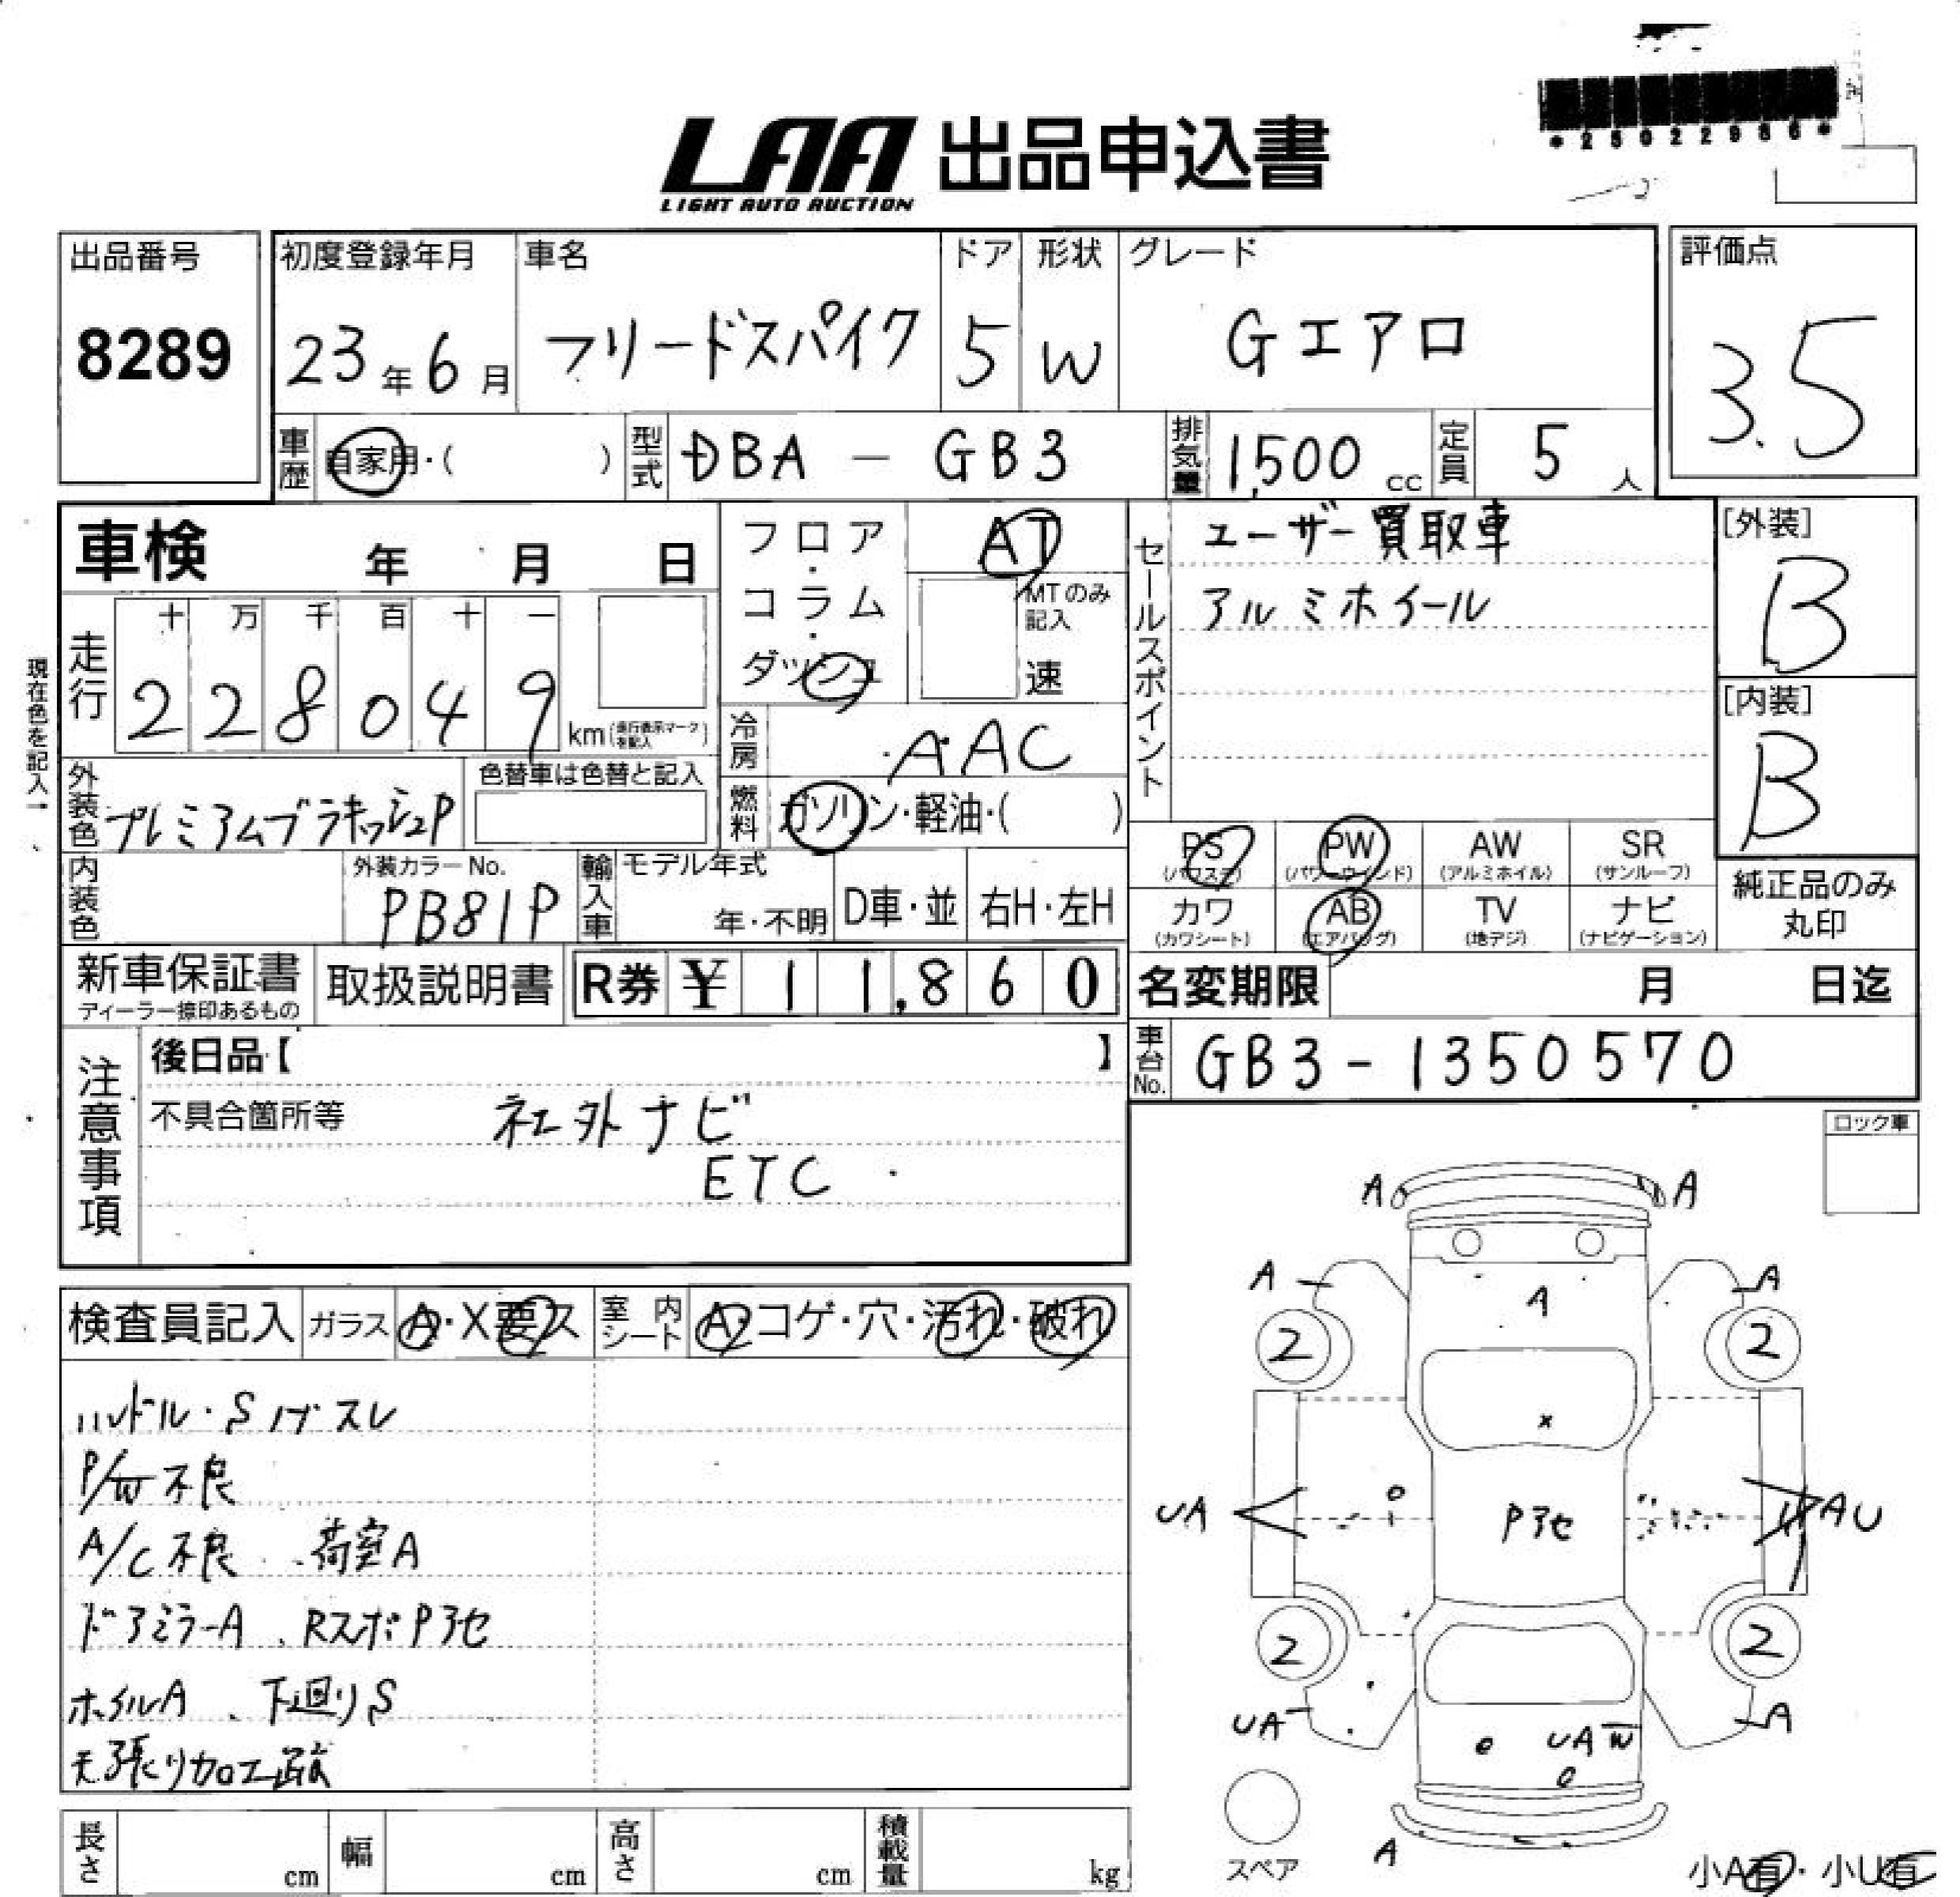 *25022986*
LAA 出品申込書
LIGHT AUTO AUCTION
出品番号 初度登録年月 車名 ドア 形状 グレード 評価点
8289 23年6月 フリードスパイク 5 W Gエアロ 3.5
車歴 自家用・( ) 型式 DBA - GB3 排気量 1,500 cc 定員 5 人
車検 年 月 日 フロア・コラム・ダッシュ AT セールスポイント ユーザー買取車 [外装]
MTのみ記入 速 アルミホイール B
走行 十 万 千 百 十 一
228049 km(走行表示マークを記入) [内装]
現在色を記入→ 冷房 AAC B
外装色 プレミアムブラキッシュP 色替車は色替と記入 燃料 ガソリン・軽油・( )
PS PW AW SR
(パワステ) (パワーウインド) (アルミホイル) (サンルーフ)
内装色 外装カラーNo. PB81P 輸入車 モデル年式 年・不明 D車・並 右H・左H
カワ AB TV ナビ 純正品のみ丸印
(カワシート) (エアバッグ) (地デジ) (ナビゲーション)
新車保証書 取扱説明書 R券 ¥ 11,860 名変期限 月 日迄
ディーラー捺印あるもの
注意事項 後日品【 】 車台No. GB3-1350570
不具合箇所等 社外ナビ
ETC
ロック車
A A
A A
A
2 2
検査員記入 ガラス A・X要ス 室内シート A・コゲ・穴・汚れ・破れ
ハンドル・Sノブスレ
P/W不良
x
UA Pアセ AU
A/C不良 荷室A
ドアミラーA、RスポPアセ
2 2
ホイルA、下廻りS
UA A
UAW
天張り加工跡
長さ cm 幅 cm 高さ cm 積載量 kg
スペア A 小A有・小U有